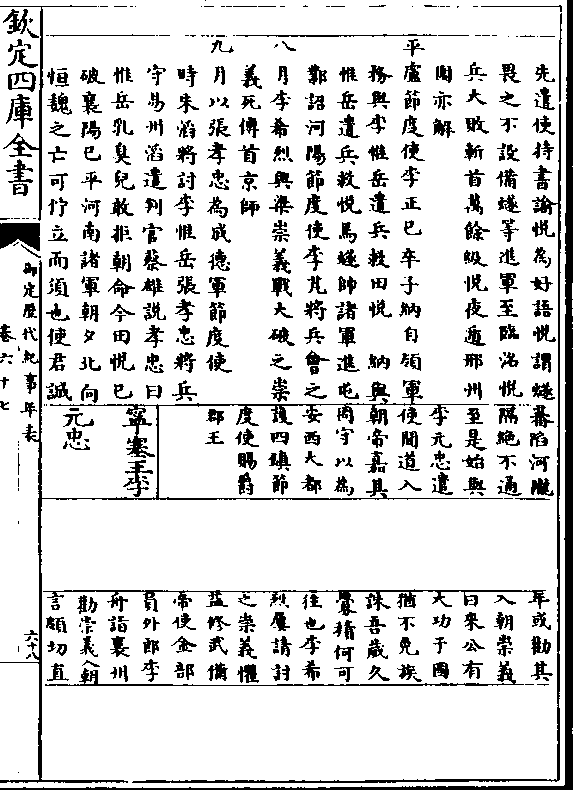 先遣使持書諭悦為好語悦謂燧
畏之不設備燧等進軍至臨洺悦
兵大敗斬首萬餘級悦夜遁邢州
圍亦解
平盧節度使李正已卒子納自領軍
務與李惟岳遣兵救田悦 納與
惟岳遣兵救悦馬燧帥諸軍進屯
鄴詔河陽節度使李芃將兵會之
八月李希烈與梁崇義戰大破之崇
義死傳首京師
九月以張孝忠為成德軍節度使
時朱滔將討李惟岳張孝忠將兵
守易州滔遣判官蔡雄説孝忠曰
惟岳乳臭兒敢拒朝命今田悦已
破襄陽已平河南諸軍朝夕北向
恒魏之亡可佇立而須也使君誠
蕃陷河隴
隔絶不通
至是始與
李元忠遣
使間道入
朝帝嘉其
固守以為
安西大都
護四鎮節
度使賜爵
郡王
寧塞王李
元忠
年或勸其
入朝崇義
曰來公有
大功于國
猶不免族
誅吾歲久
釁積何可
往也李希
烈屢請討
之崇義懼
益修武備
帝使金部
員外郎李
舟詣襄州
勸崇義入朝
言頗切直
欽定四庫全書
御定歷代紀事年表
卷六十七
六十八